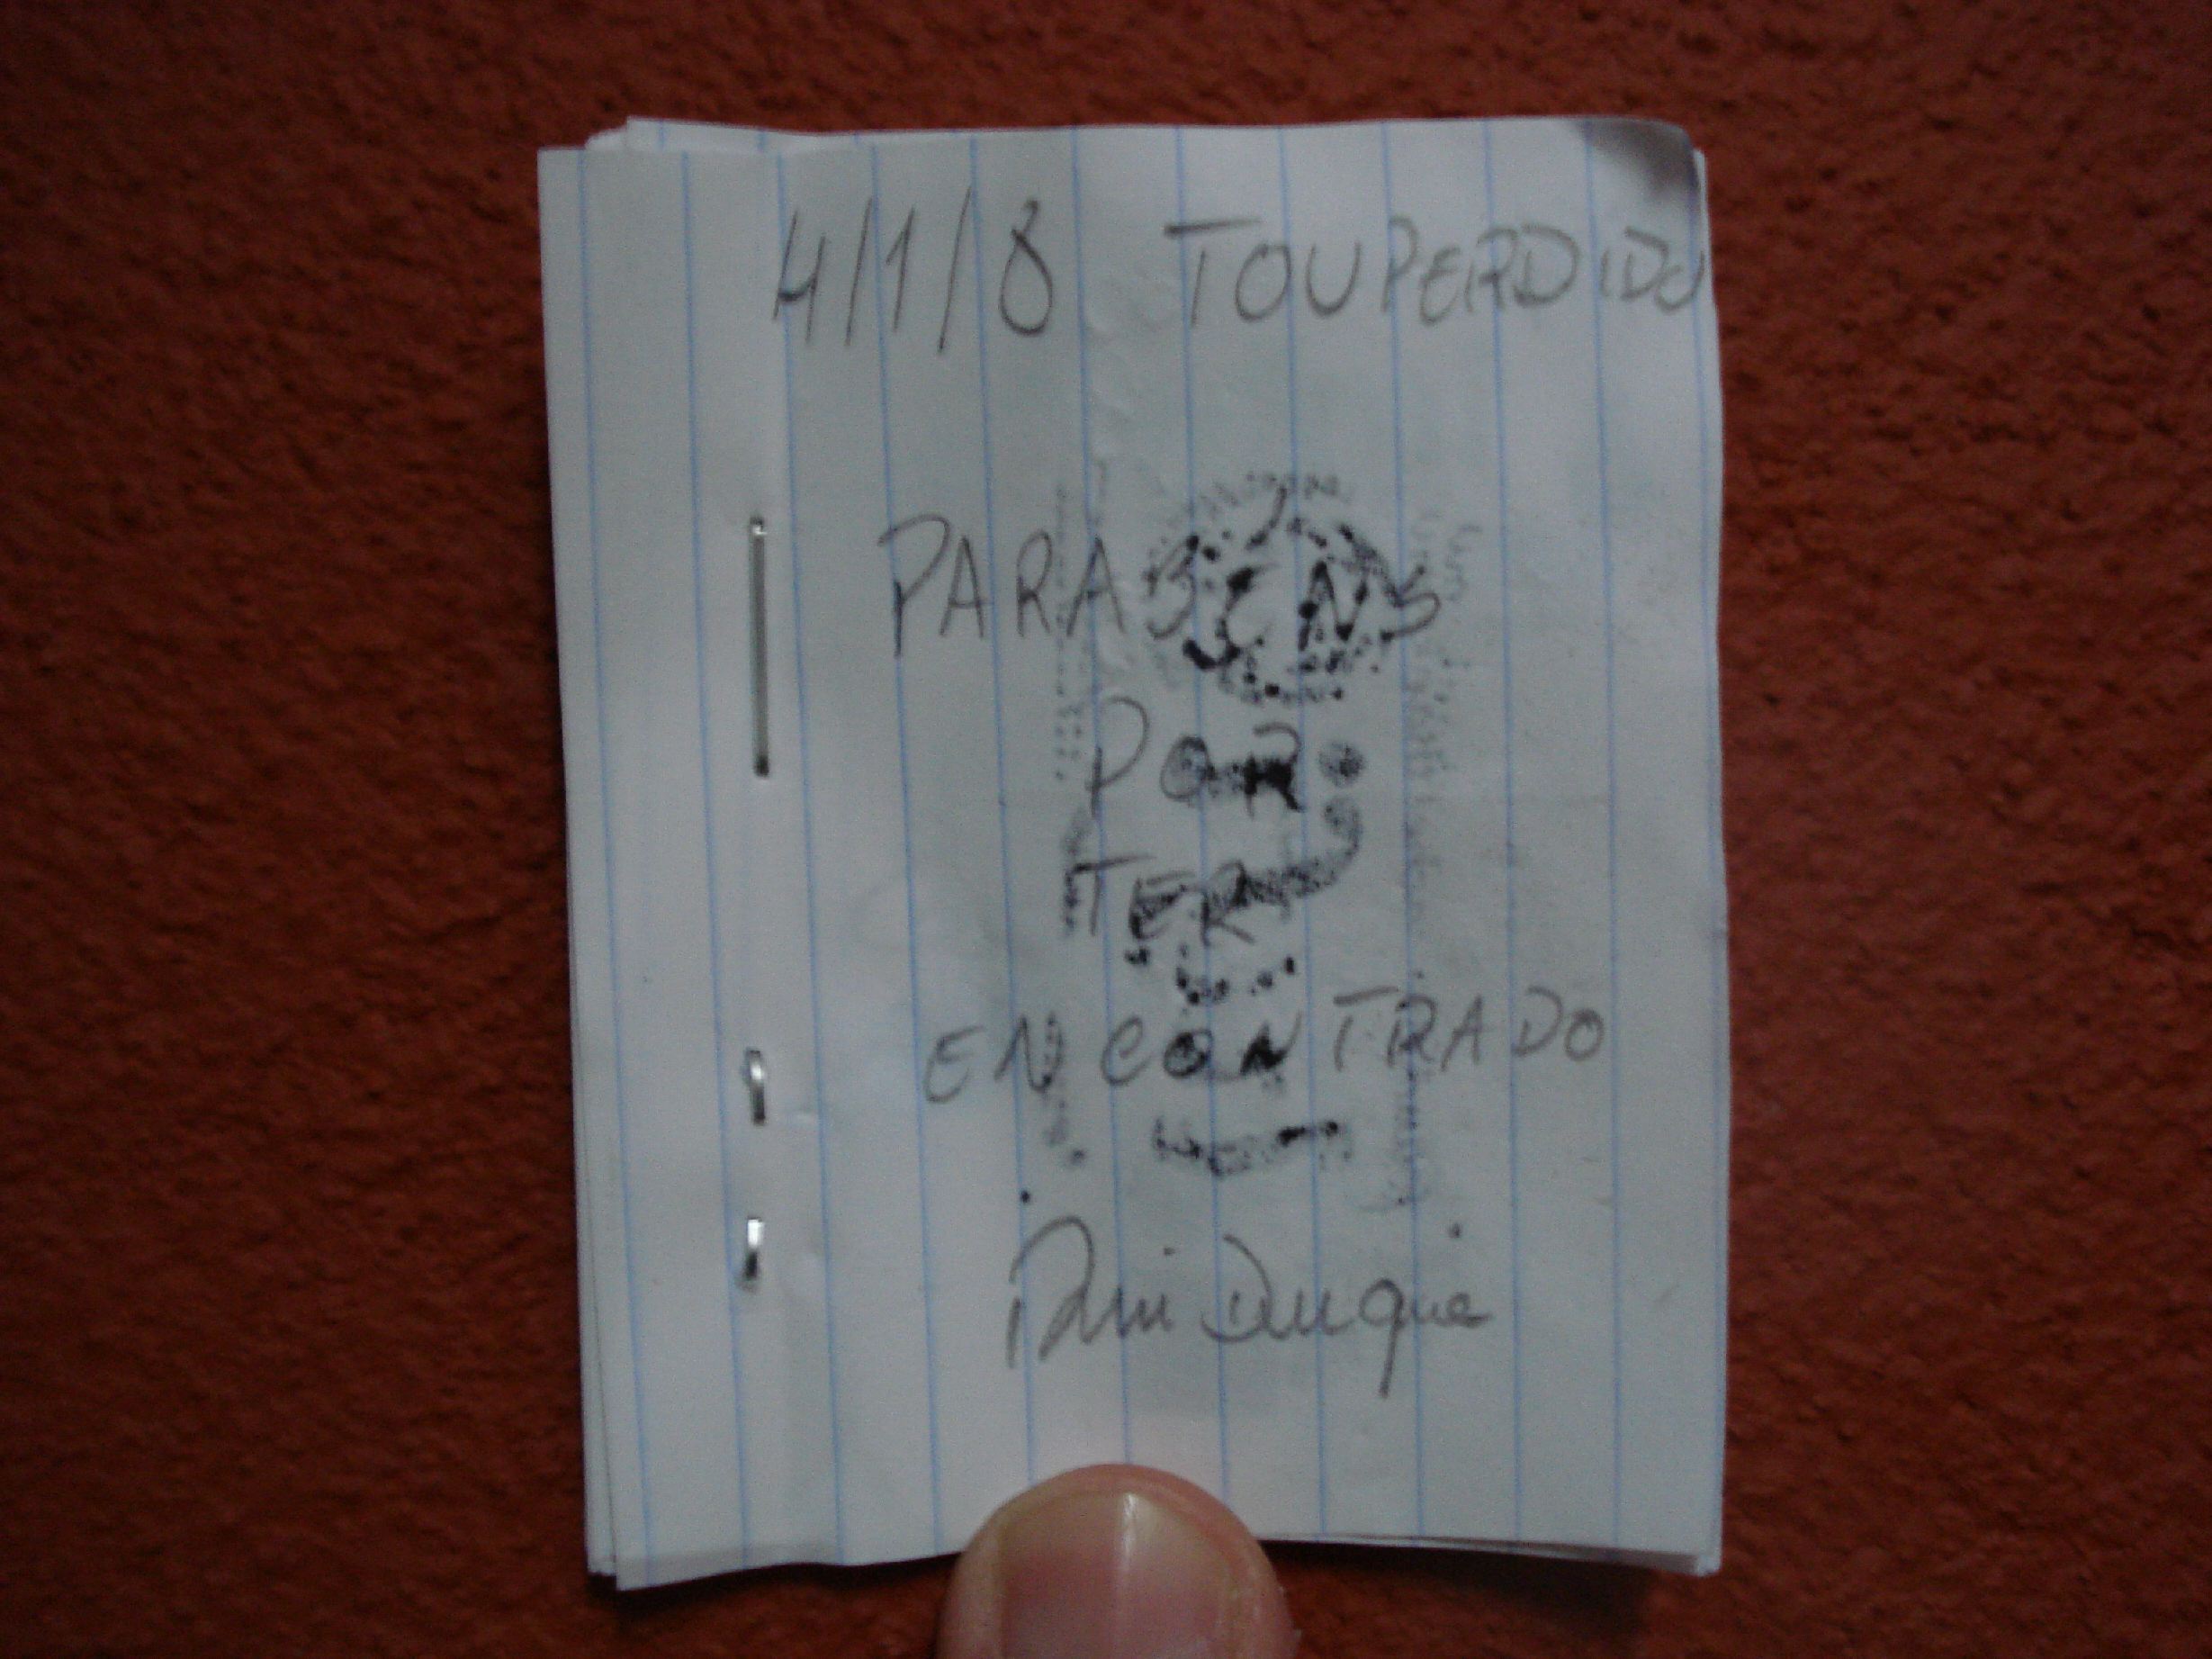 4/1/8 TOUPERDIDO
PARABENS
POR
TER
ENCONTRADO
Rui Duque